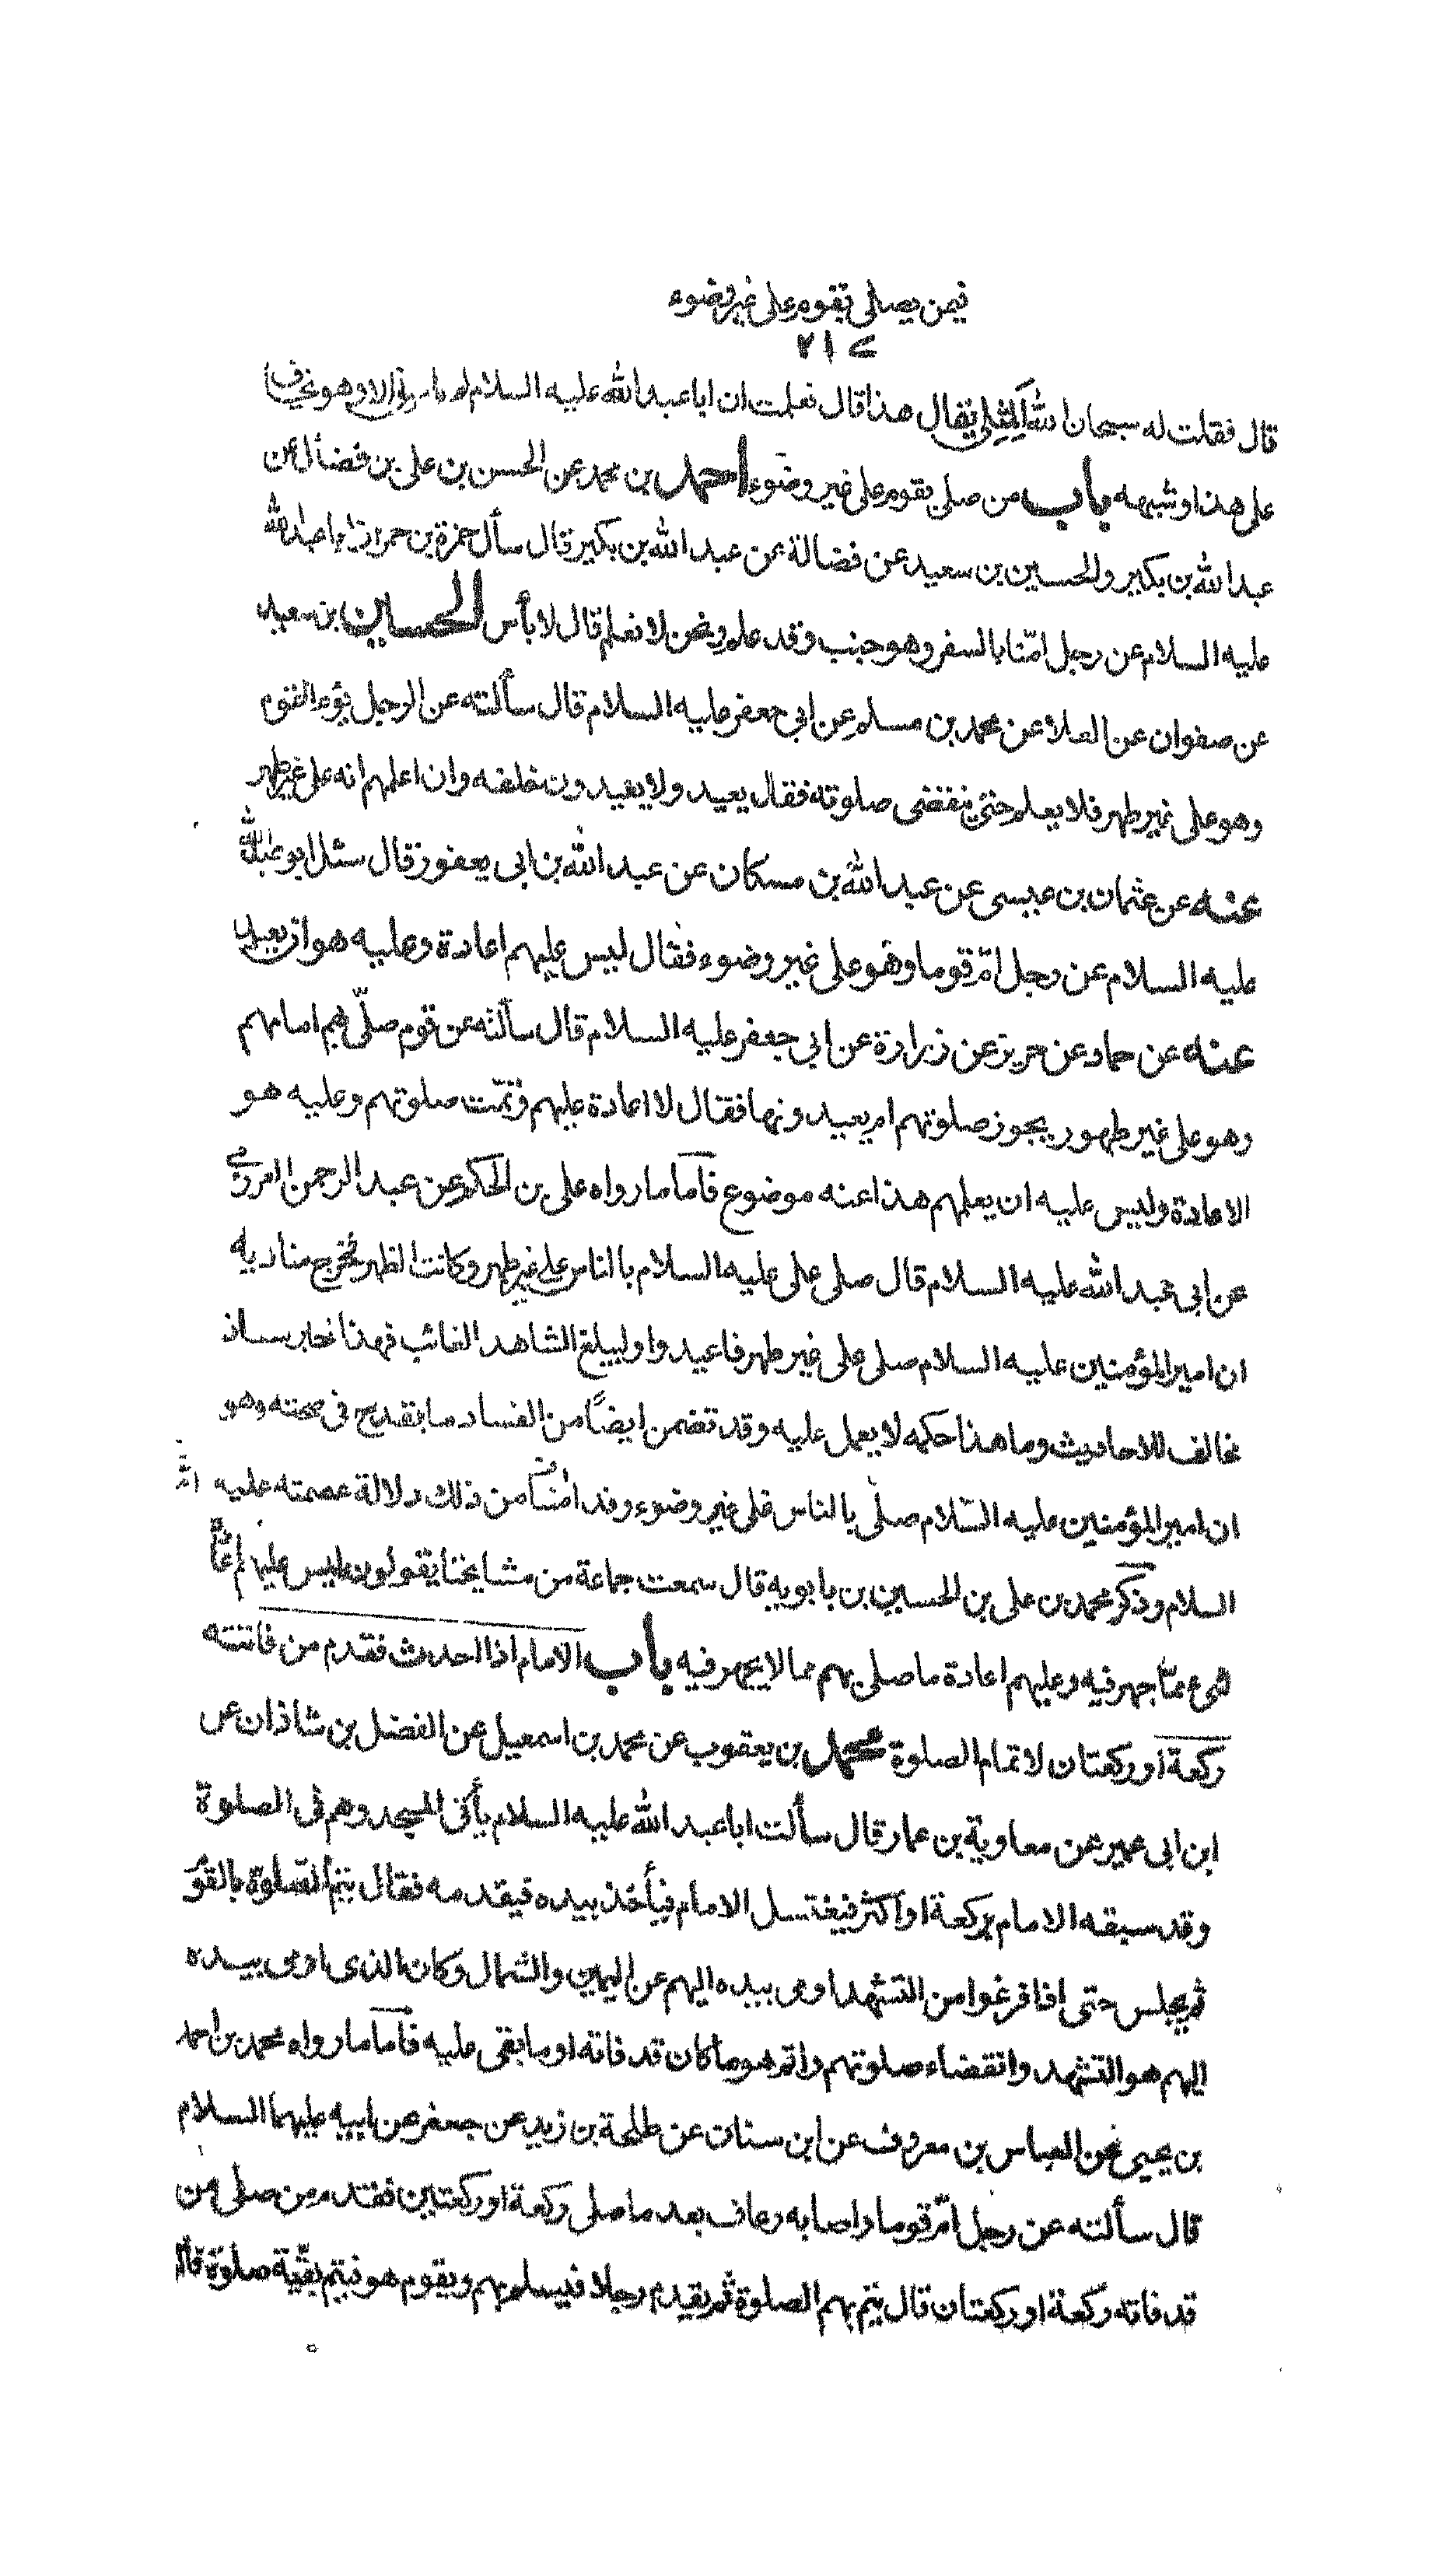 فيمن يصلى بقوم على غير وضوء
٢١٤
قال فقلت له سبحان الله المثلى يقال هذا قال فعلمت ان ابا عبد الله عليه السلام لم يأمرنى الا وهو يخاف
على هذا وشبهه باب من صلى بقوم على غير وضوء احمد بن محمد عن الحسن بن على بن فضال عن
عبد الله بن بكير والحسين بن سعيد عن فضالة عن عبد الله بن بكير قال سأل حمزة بن حمران ابا عبد الله
عليه السلام عن رجل امّنا بالسفر وهو جنب وقد علم ونحن لا نعلم قال لا بأس الحسين بن سعيد
عن صفوان عن العلا عن محمد بن مسلم عن ابى جعفر عليه السلام قال سألته عن الرجل يؤم القوم
وهو على غير طهر فلا يعلم حتى تنقضى صلوته فقال يعيد ولا يعيدون خلفه وان اعلمهم انه على غير طهر
عنه عن عثمان بن عيسى عن عبد الله بن مسكان عن عبد الله بن ابى يعفور قال سئل ابو عبد الله
عليه السلام عن رجل امّ قوما وهو على غير وضوء فقال ليس عليهم اعادة وعليه هو ان يعيد
عنه عن حماد عن حريز عن زرارة عن ابى جعفر عليه السلام قال سألته عن قوم صلّى بهم امامهم
وهو على غير طهور يجوز صلوتهم ام يعيدونها فقال لا اعادة عليهم وتمّت صلوتهم وعليه هو
الاعادة وليس عليه ان يعلمهم هذا عنه موضوع فاما ما رواه على بن الحكم عن عبد الرحمن العرزمى
عن ابى عبد الله عليه السلام قال صلى على عليه السلام بالناس على غير طهر وكانت الظهر فخرج مناديه
ان امير المؤمنين عليه السلام صلى على غير طهر فاعيدوا وليبلغ الشاهد الغائب فهذا خبر شاذ
مخالف للاحاديث وما هذا حكمه لا يعمل عليه وقد تضمن ايضًا من الفساد ما يقدح فى صحته وهو
ان امير المؤمنين عليه السّلام صلّى بالناس على غير وضوء وقد امنّا من ذلك دلالة عصمته عليه
السلام وذكر محمد بن على بن الحسين بن بابويه قال سمعت جماعة من مشايخنا يقولون ليس عليهم اعادة
شىء ممّا جهر فيه وعليهم اعادة ما صلى بهم مما لا يجهر فيه باب الامام اذا احدث فقدم من فاتته
ركعة او ركعتان لاتمام الصلوة محمد بن يعقوب عن محمد بن اسمعيل عن الفضل بن شاذان عن
ابن ابى عمير عن معاوية بن عمار قال سألت ابا عبد الله عليه السلام يأتى المسجد وهم فى الصلوة
وقد سبقه الامام بركعة او اكثر فيغتسل الامام فيأخذ بيده فيقدمه فقال يتم الصلوة بالقوم
ثم يجلس حتى اذا فرغوا من التشهد اومى بيده اليهم عن اليمين والشمال وكان الذى اومى بيده
اليهم هو التشهد وانقضاء صلوتهم واتم هو ما كان قد فاته او ما بقى عليه فاما ما رواه محمد بن احمد
بن يحيى عن العباس بن معروف عن ابن سنان عن طلحة بن زيد عن جعفر عن ابيه عليهما السلام
قال سألته عن رجل امّ قوما واصابه رعاف بعد ما صلى ركعة او ركعتين فقدم من صلى من
قد فاته ركعة او ركعتان قال يتم بهم الصلوة ثم يقدم رجلا فيسلم بهم ويقوم هو فيتم بقيّة صلوته